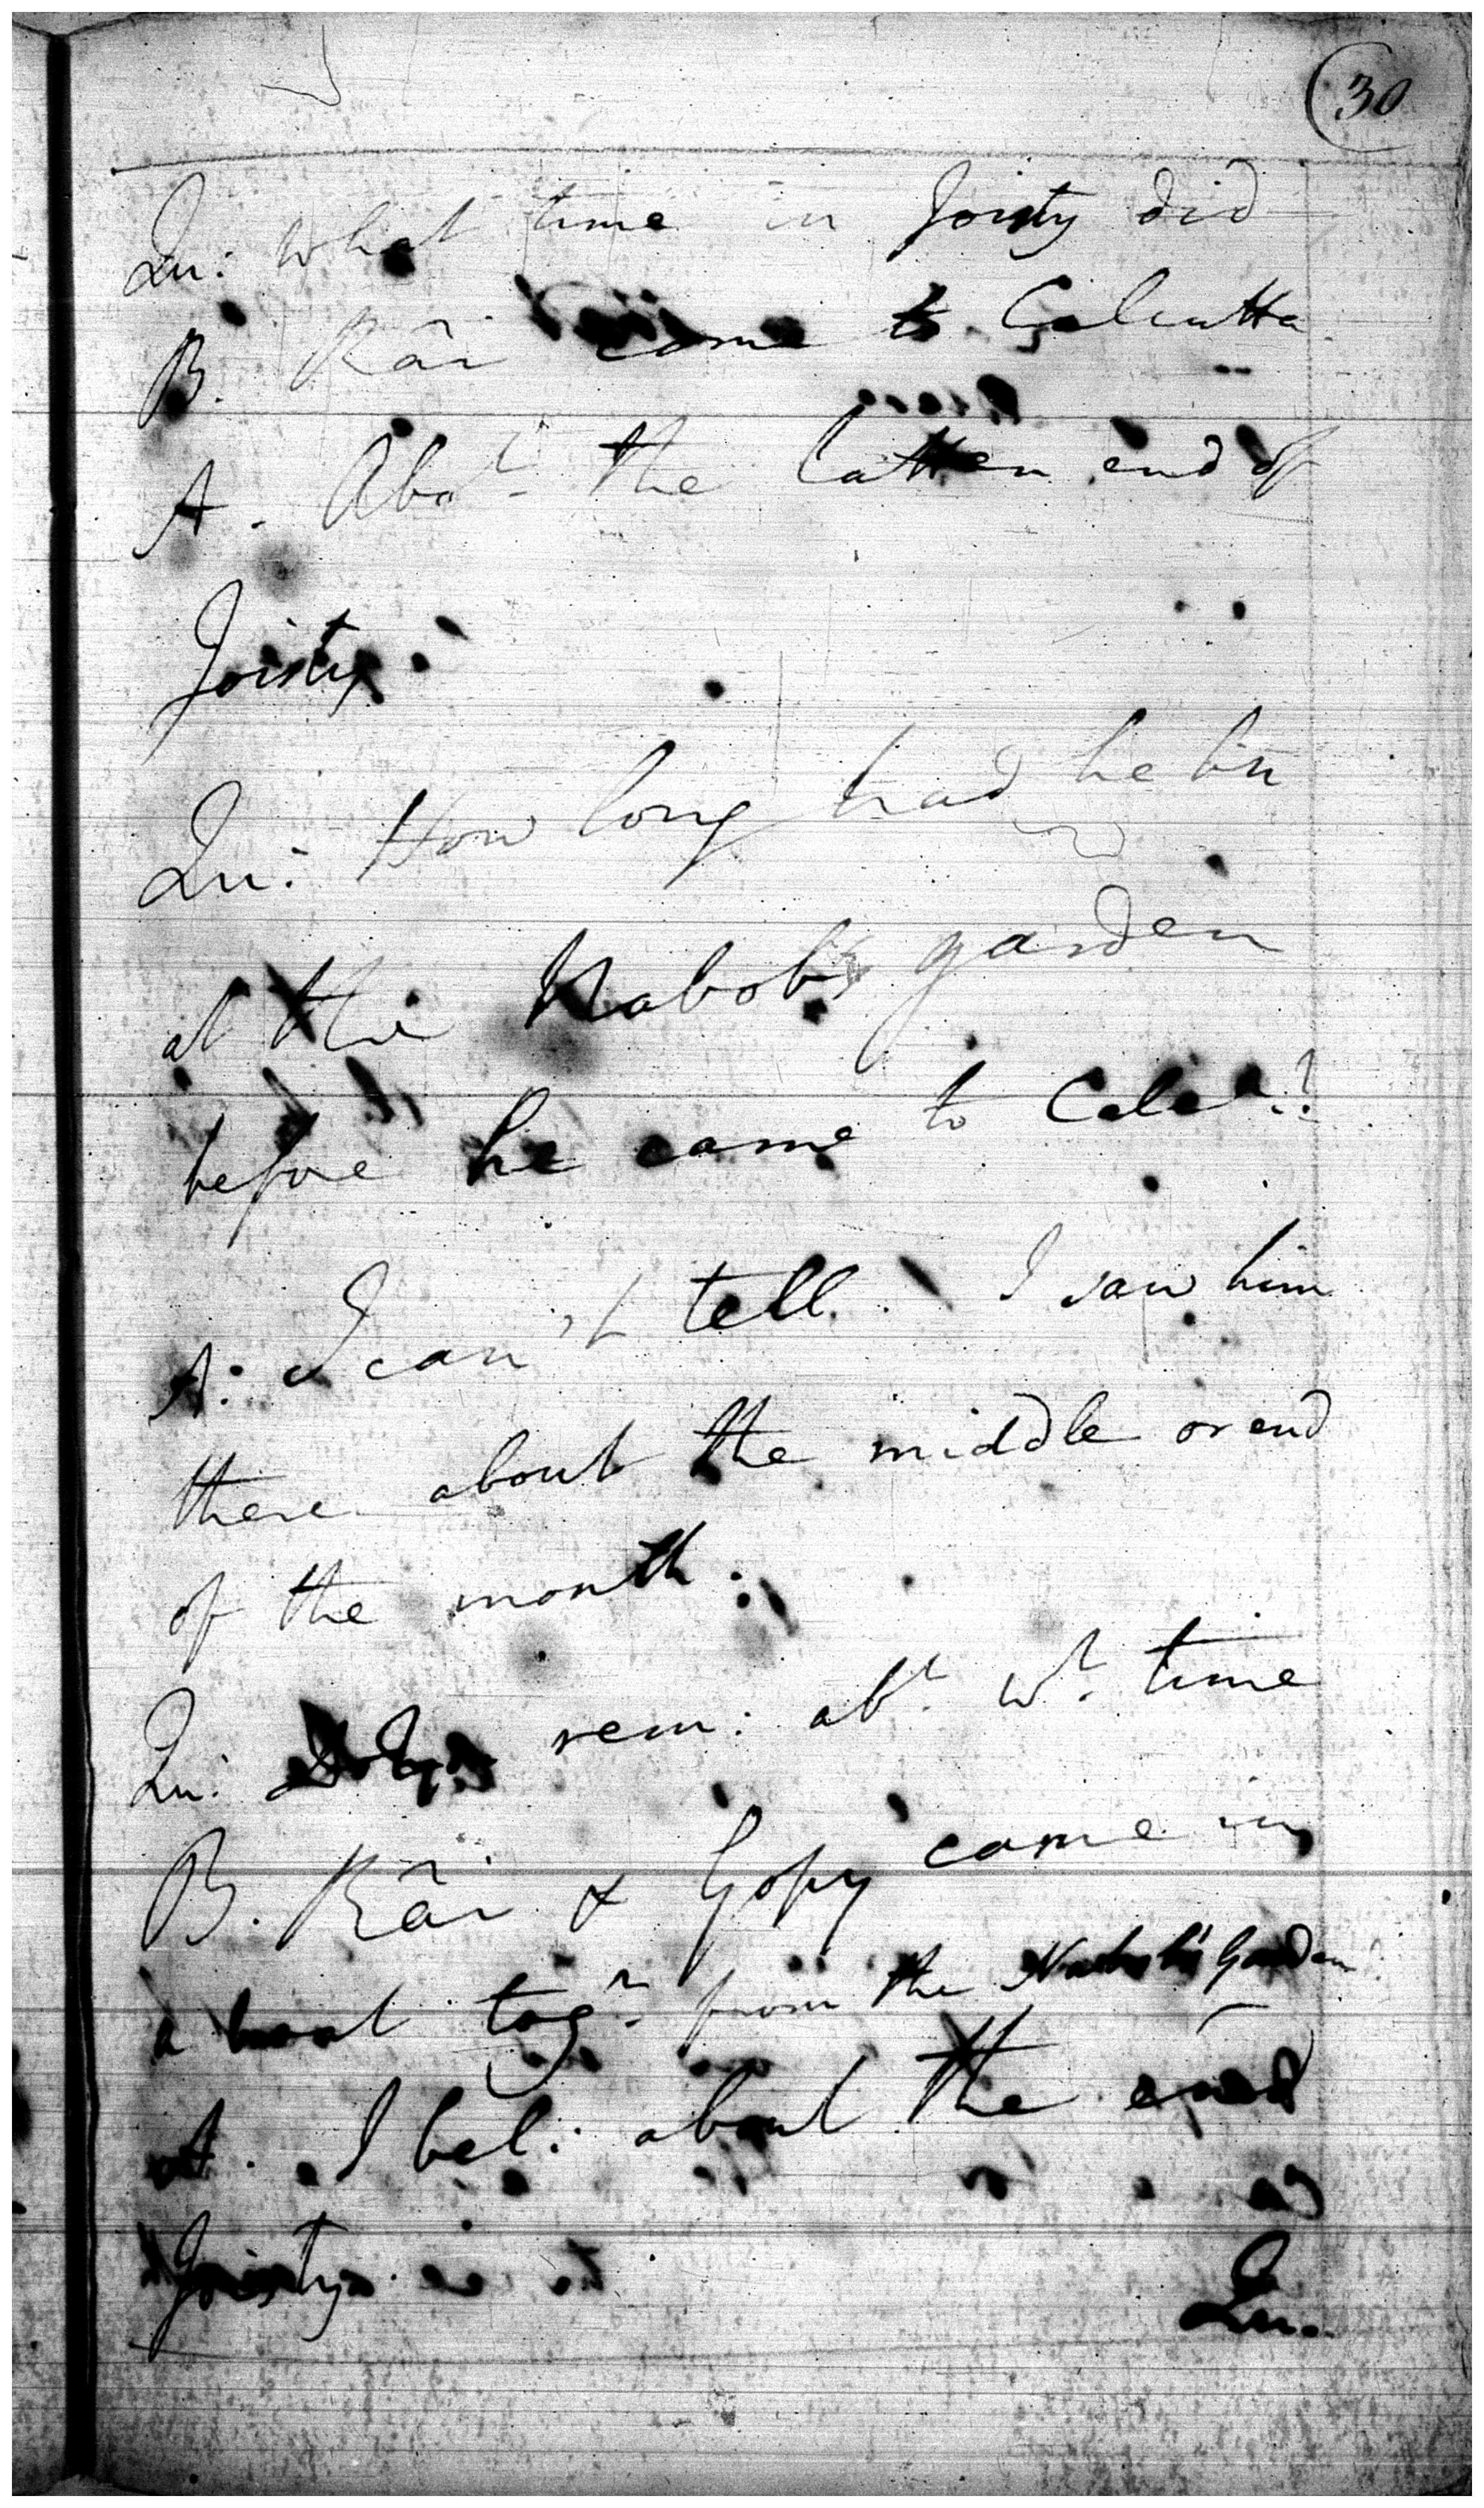 30
Qu: What time in Joisty did
B. Râi come to Calcutta
A. Abot. the latter end of
Joisty.
Qu: How long had he bn
at the Nabob's garden
before he came to Calca.?
A: I can't tell. I saw him
there about the middle or end
of the month.
Qu: rem: abt. wt. time
B. Râi & Gopy came in
a boat togr. from the Nabob's Garden
A. I bel: about the end
Joisty.
Qu.